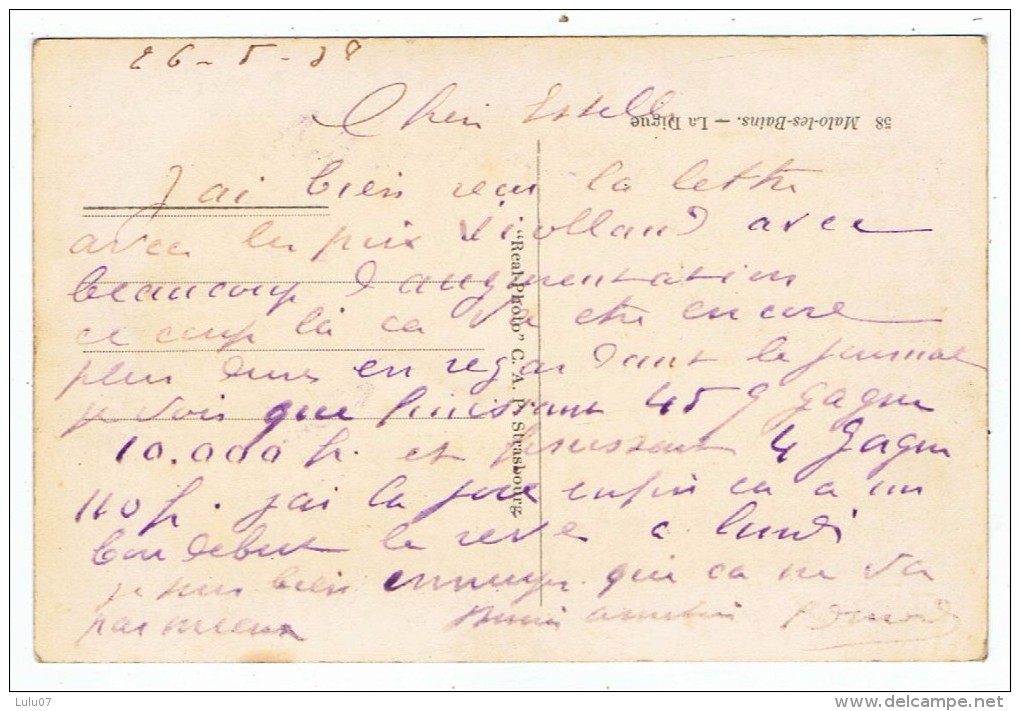 26-5-38
Chère Estelle
58 Malo-les-Bains. — La Digue
J'ai bien reçu la lettre
avec les prix avec
beaucoup d'augmentation
ce coup là ca va etre encore
plus dure en regardant le journal
je vois que finissant 459 gagne
10.000 fr. et finissant 4 gagne
110 fr. jai la joie enfin ca a un
bon debut le reve a lundi
je suis bien ennuyé que ca ne va
pas mieux
"Real-Photo" C. A. P. Strasbourg.
Lulu07
www.delcampe.net